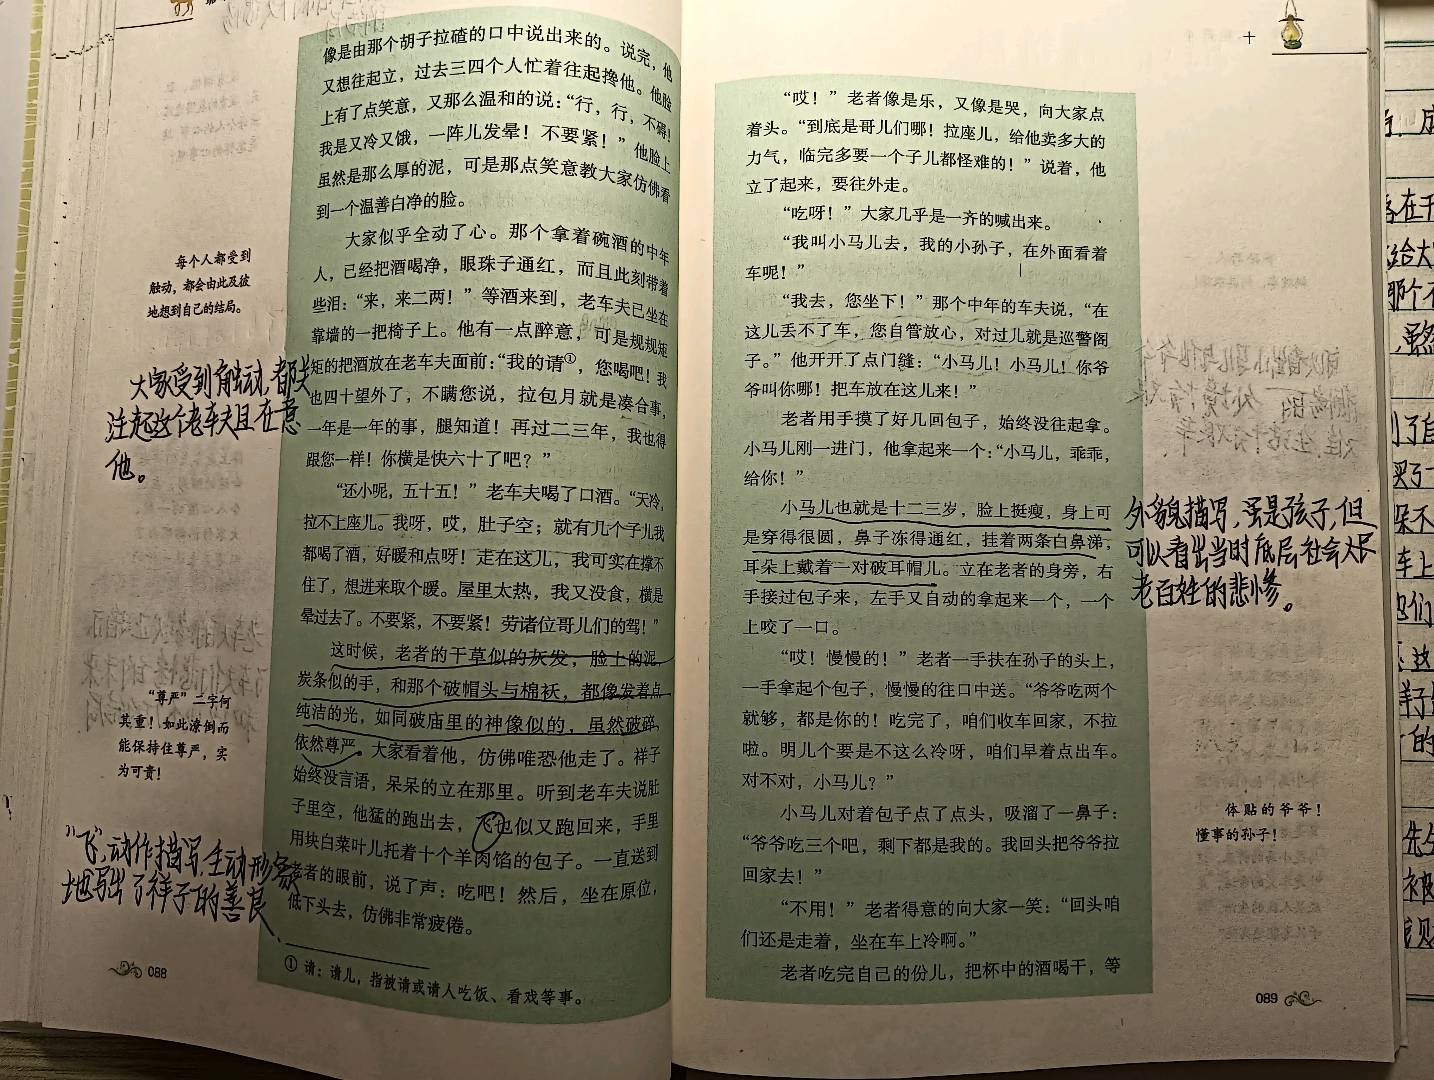 像是由那个胡子拉碴的口中说出来的。说完，他
又想往起立，过去三四个人忙着往起搀他。他脸
上有了点笑意，又那么温和的说：“行，行，不碍！
我是又冷又饿，一阵儿发晕！不要紧！”他脸上
虽然是那么厚的泥，可是那点笑意教大家仿佛看
到一个温善白净的脸。
大家似乎全动了心。那个拿着碗酒的中年
人，已经把酒喝净，眼珠子通红，而且此刻带着
些泪：“来，来二两！”等酒来到，老车夫已坐在
靠墙的一把椅子上。他有一点醉意，可是规规矩
矩的把酒放在老车夫面前：“我的请①，您喝吧！我
也四十望外了，不瞒您说，拉包月就是凑合事，
一年是一年的事，腿知道！再过二三年，我也得
跟您一样！你横是快六十了吧？”
“还小呢，五十五！”老车夫喝了口酒。“天冷，
拉不上座儿。我呀，哎，肚子空；就有几个子儿我
都喝了酒，好暖和点呀！走在这儿，我可实在撑不
住了，想进来取个暖。屋里太热，我又没食，横是
晕过去了。不要紧，不要紧！劳诸位哥儿们的驾！”
这时候，老者的干草似的灰发，脸上的泥，
炭条似的手，和那个破帽头与棉袄，都像发着点
纯洁的光，如同破庙里的神像似的，虽然破碎，
依然尊严。大家看着他，仿佛唯恐他走了。祥子
始终没言语，呆呆的立在那里。听到老车夫说肚
子里空，他猛的跑出去，飞也似又跑回来，手里
用块白菜叶儿托着十个羊肉馅的包子。一直送到
老者的眼前，说了声：吃吧！然后，坐在原位，
低下头去，仿佛非常疲倦。
① 请：请儿，指被请或请人吃饭、看戏等事。
088
每个人都受到
触动，都会由此及彼
地想到自己的结局。
大家受到触动，都关
注起这个老车夫且在意
他。
“尊严”二字何
其重！如此潦倒而
能保持住尊严，实
为可贵！
“飞”，动作描写，生动形象
地写出了祥子的善良。
十
“哎！”老者像是乐，又像是哭，向大家点
着头。“到底是哥儿们哪！拉座儿，给他卖多大的
力气，临完多要一个子儿都怪难的！”说着，他
立了起来，要往外走。
“吃呀！”大家几乎是一齐的喊出来。
“我叫小马儿去，我的小孙子，在外面看着
车呢！”
“我去，您坐下！”那个中年的车夫说，“在
这儿丢不了车，您自管放心，对过儿就是巡警阁
子。”他开开了点门缝：“小马儿！小马儿！你爷
爷叫你哪！把车放在这儿来！”
老者用手摸了好几回包子，始终没往起拿。
小马儿刚一进门，他拿起来一个：“小马儿，乖乖，
给你！”
小马儿也就是十二三岁，脸上挺瘦，身上可
是穿得很圆，鼻子冻得通红，挂着两条白鼻涕，
耳朵上戴着一对破耳帽儿。立在老者的身旁，右
手接过包子来，左手又自动的拿起来一个，一个
上咬了一口。
“哎！慢慢的！”老者一手扶在孙子的头上，
一手拿起个包子，慢慢的往口中送。“爷爷吃两个
就够，都是你的！吃完了，咱们收车回家，不拉
啦。明儿个要是不这么冷呀，咱们早着点出车。
对不对，小马儿？”
小马儿对着包子点了点头，吸溜了一鼻子：
“爷爷吃三个吧，剩下都是我的。我回头把爷爷拉
回家去！”
“不用！”老者得意的向大家一笑：“回头咱
们还是走着，坐在车上冷啊。”
老者吃完自己的份儿，把杯中的酒喝干，等
089
外貌描写，虽是孩子，但
可以看出当时底层社会人民
老百姓的悲惨。
体贴的爷爷！
懂事的孙子！